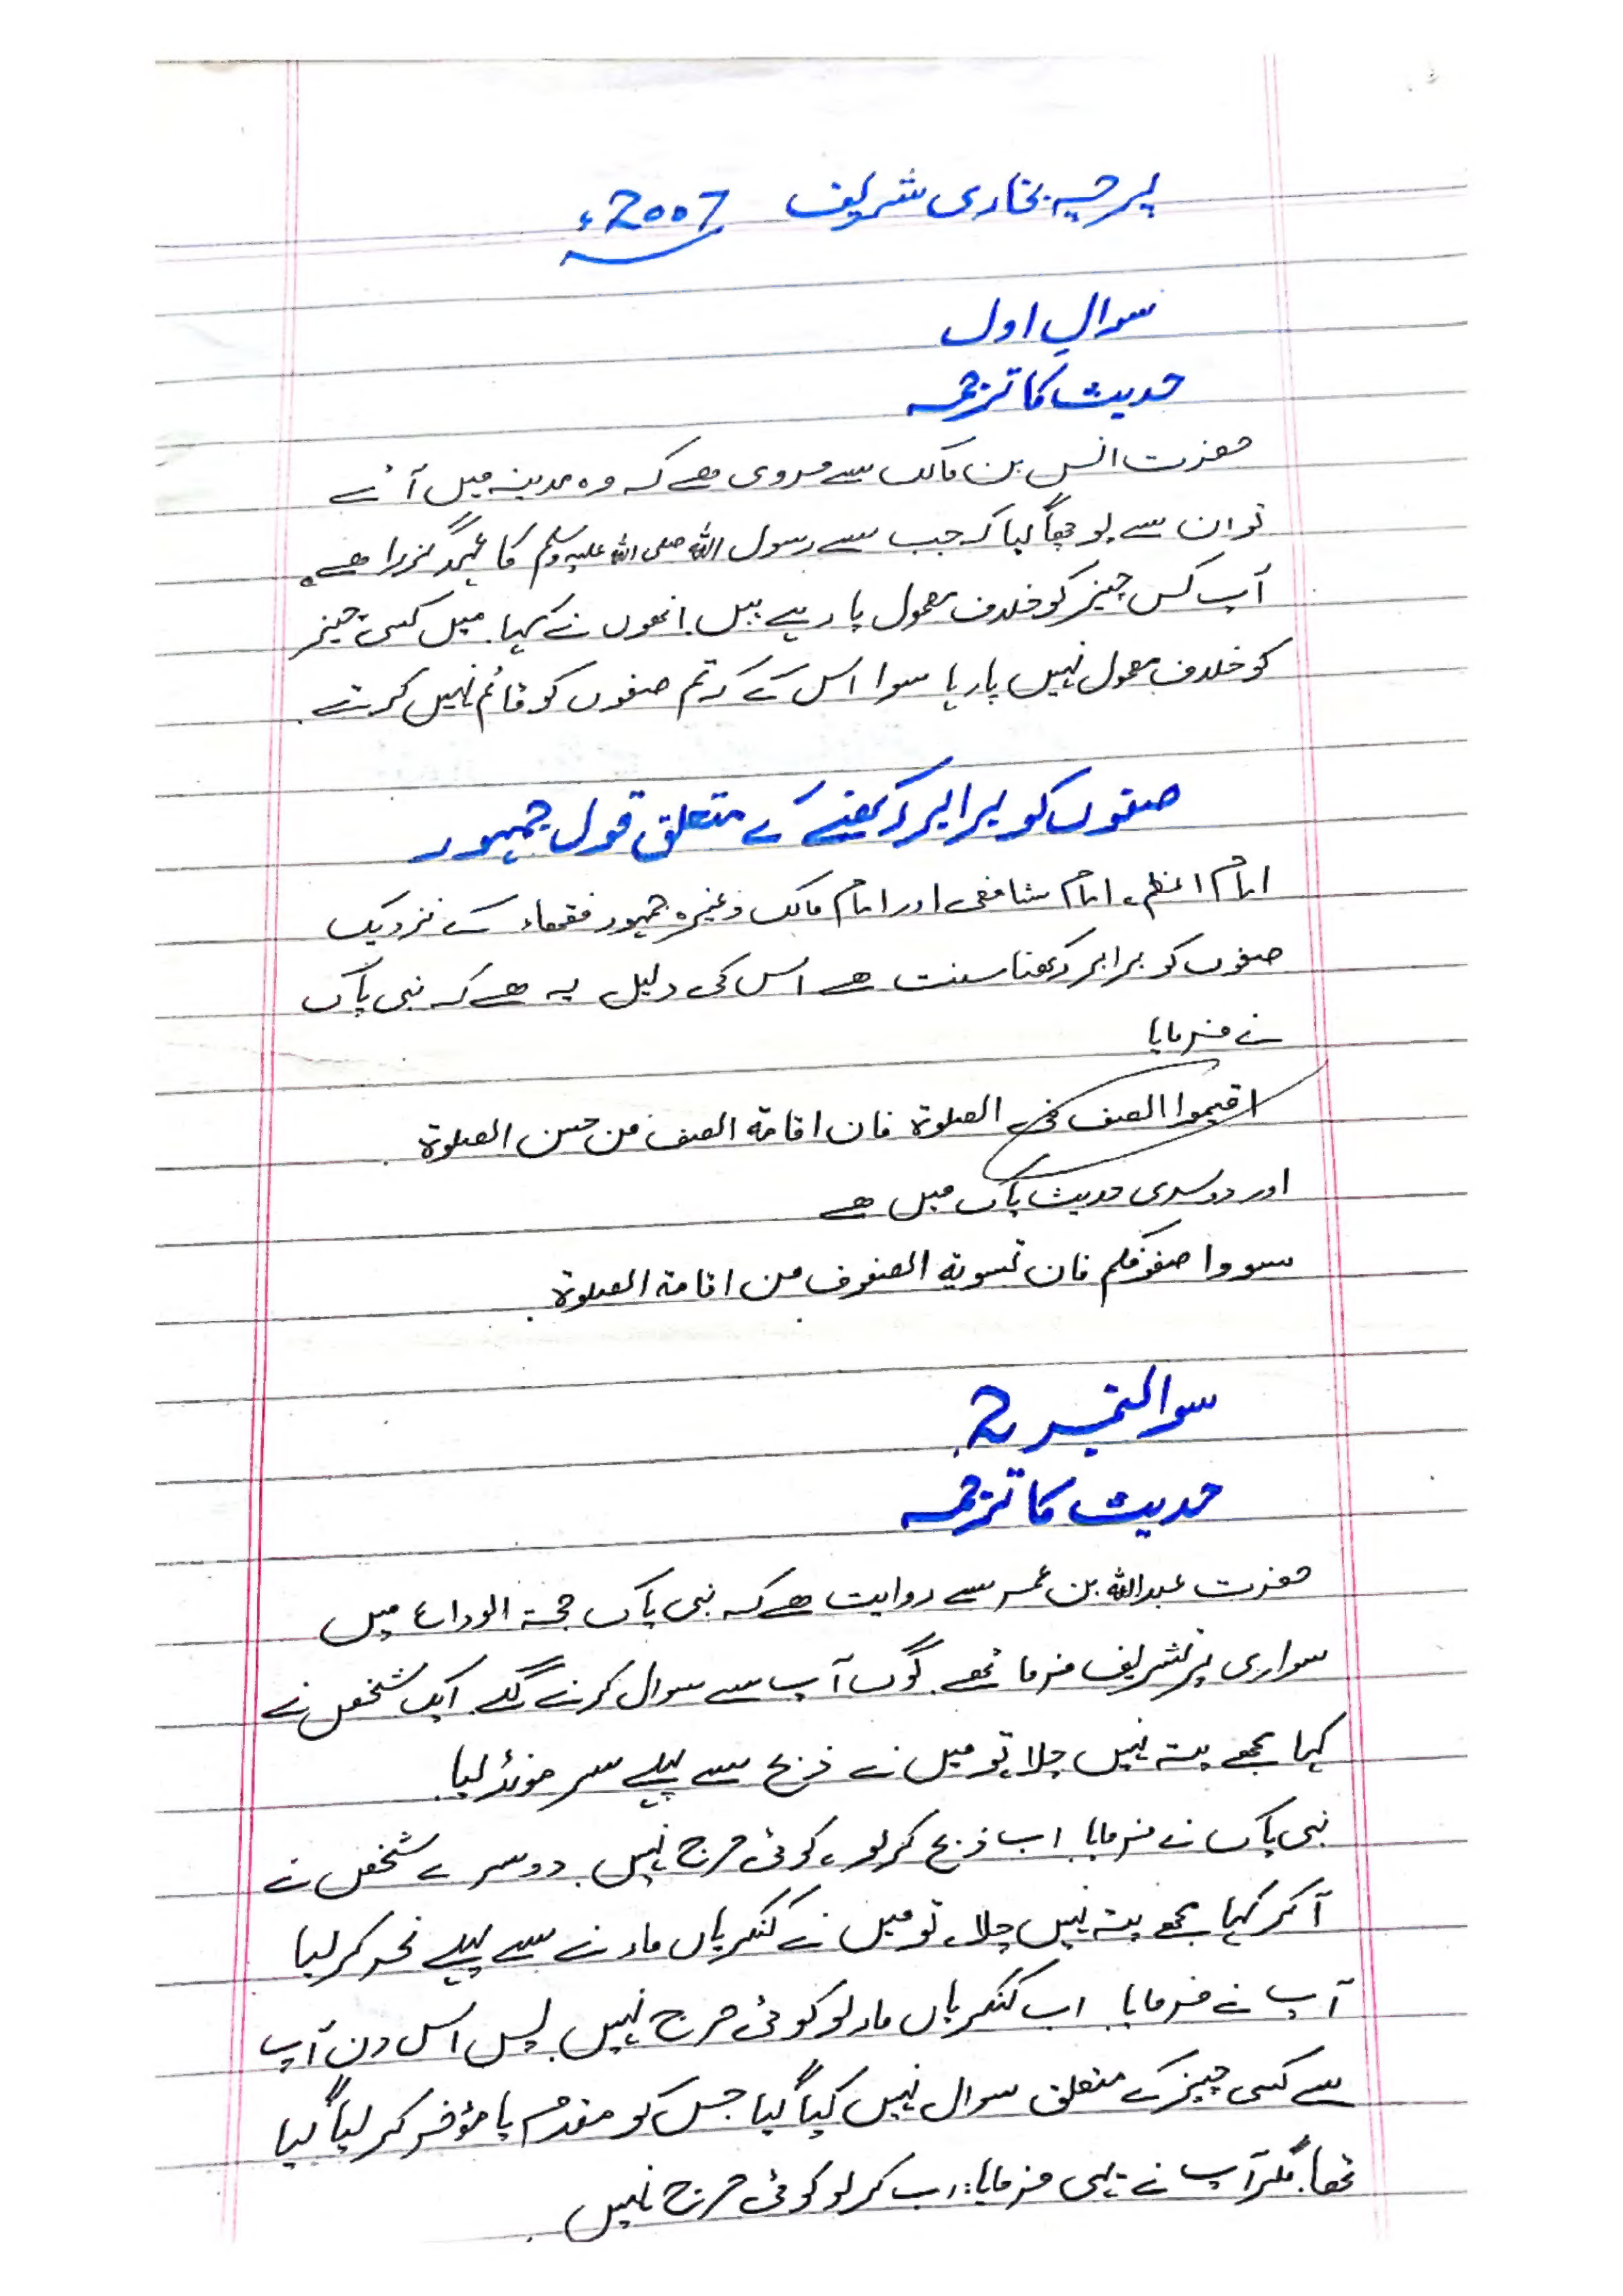 پرچہ بخاری شریف 2007ء
سوال اول
حدیث کا ترجمہ
حضرت انس بن مالک سے مروی ھے کہ وہ مدینہ میں آئے
تو ان سے پوچھا گیا کہ جب سے رسول اللہ صلی اللہ علیہ وسلم کا عہد گزرا ھے
آپ کس چیز کو خلاف معمول پا رہے ہیں. انھوں نے کہا. میں کسی چیز
کو خلاف معمول نہیں پا رہا سوا اس کے کہ تم صفوں کو قائم نہیں کرتے.
صفوں کو برابر رکھنے کے متعلق قول جمہور
امام اعظم، امام شافعی اور امام مالک وغیرہ جمہور فقھاء کے نزدیک
صفوں کو برابر رکھنا سنت ھے اس کی دلیل یہ ھے کہ نبی پاک
نے فرمایا
اقیموا الصف فی الصلوۃ فان اقامۃ الصف من حسن الصلوۃ.
اور دوسری حدیث پاک میں ھے
سووا صفوفکم فان تسویۃ الصفوف من اقامۃ الصلوۃ.
سوالنمبر 2.
حدیث کا ترجمہ
حضرت عبداللہ بن عمر سے روایت ھے کہ نبی پاک حجۃ الوداع میں
سواری پر تشریف فرما تھے. لوگ آپ سے سوال کرنے لگے. ایک شخص نے
کہا مجھے پتہ نہیں چلا، تو میں نے ذبح سے پہلے سر مونڈ لیا.
نبی پاک نے فرمایا اب ذبح کر لو، کوئی حرج نہیں. دوسرے شخص نے
آ کر کہا مجھے پتہ نہیں چلا، تو میں نے کنکریاں مارنے سے پہلے نحر کر لیا
آپ نے فرمایا. اب کنکریاں مار لو کوئی حرج نہیں. پس اس دن آپ
سے کسی چیز کے متعلق سوال نہیں کیا گیا جس کو مقدم یا مؤخر کر لیا گیا
تھا. مگر آپ نے یہی فرمایا: اب کر لو کوئی حرج نہیں.